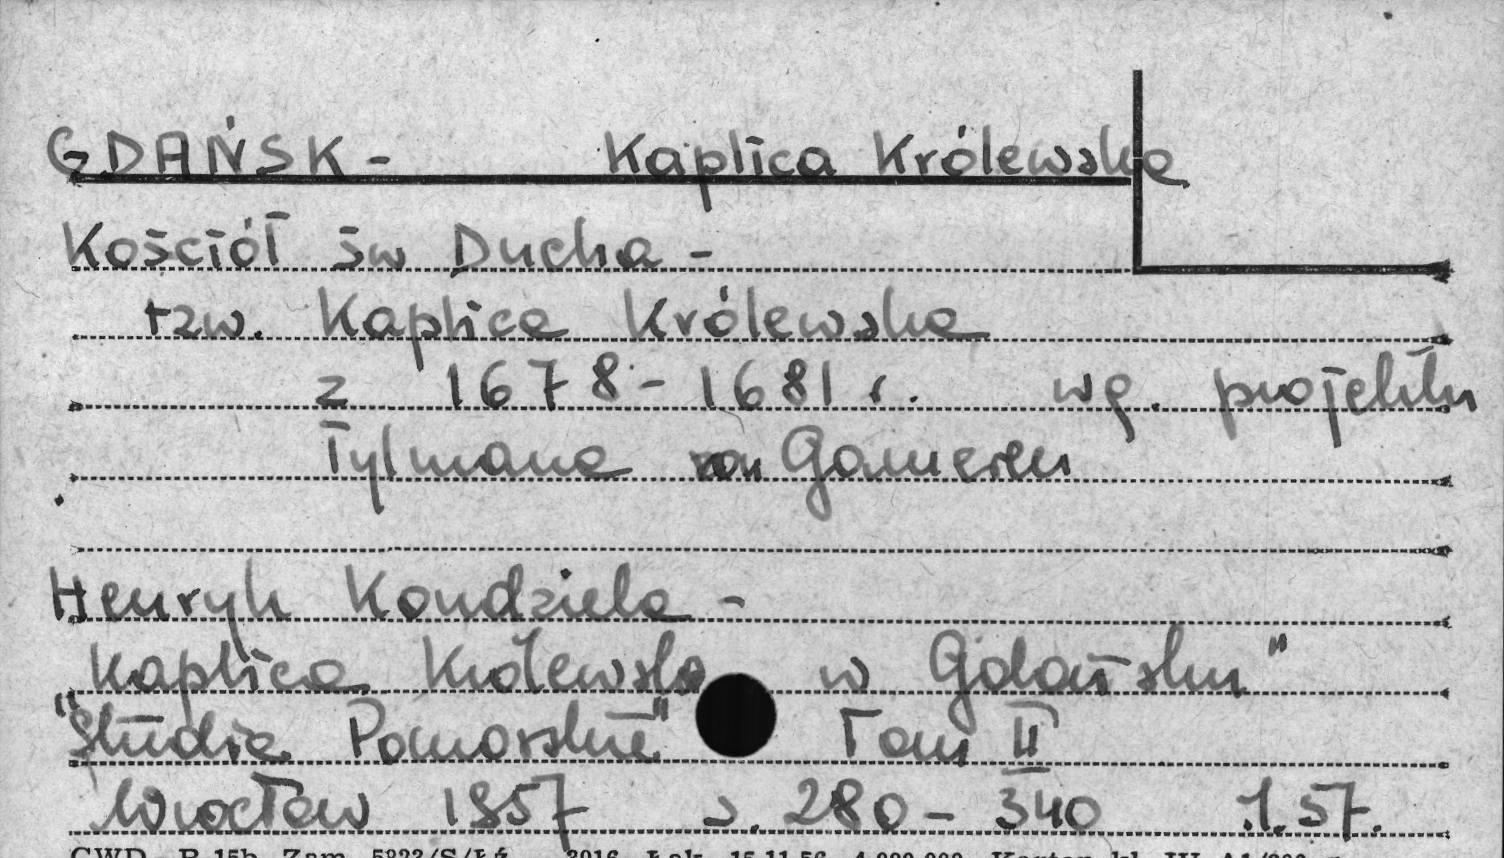 GDAŃSK - Kaplica Królewska
Kościół św Ducha -
tzw. Kaplica Królewska
z 1678 - 1681 r. wg. projektu
Tylmana von Gameren
Henryk Kondziela -
Kaplica Królewska w Gdańsku"
"Studia Pomorskie" Tom II
Wrocław 1957 s. 280 - 340 1.57.
CWD - R-15b Zam. 5823/S/Łź 3016 Łak. 15.11.56 4.000.000 Karton kl. IV A1/200